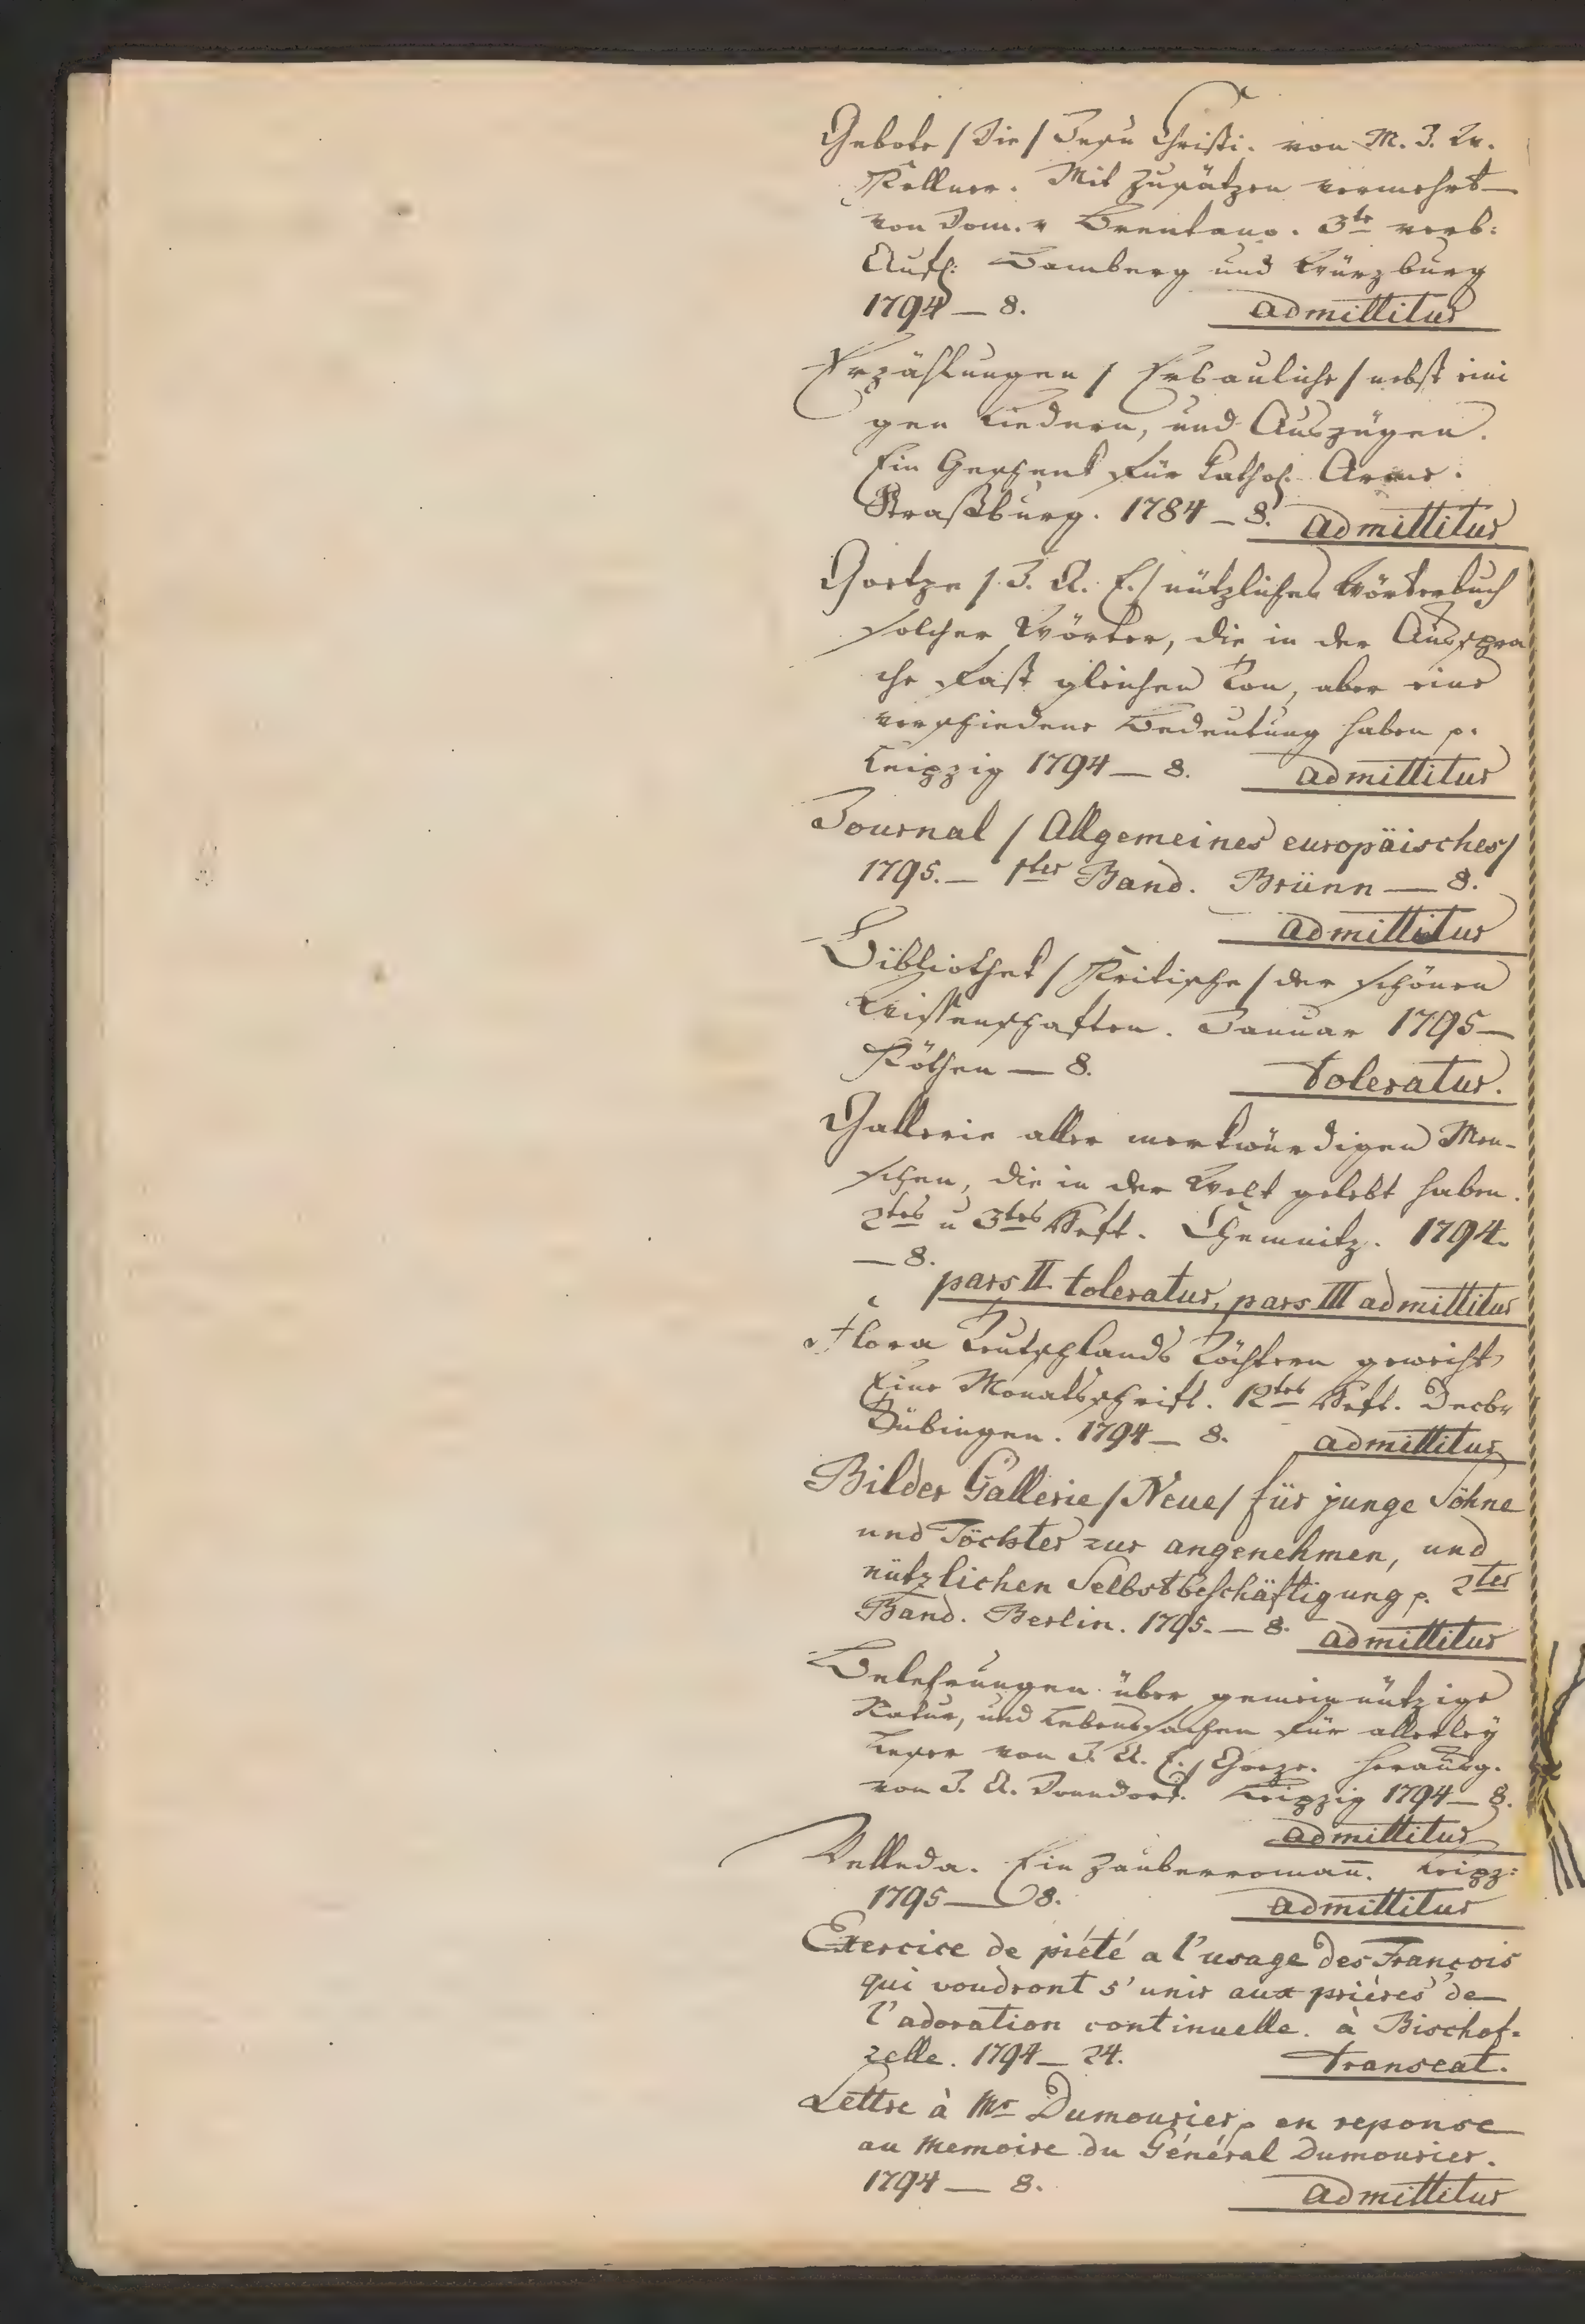 Gebote / Die / Jesu Christi. von M. J. Fr.
Kellner. Mit Zusätzen vermehrt
von Dom. v Brentano. 3te verb:
Aufl: Bamberg und Würzburg
1794 — 8. admittitur
Erzählungen / Erbauliche / nebst eini
gen Liedern, und Auszügen.
Ein Geschenk für kathol. Arme.
Straßburg. 1784 — 8. admittitur
Goetze / J. A. E. / nützliches Wörterbuch
solcher Wörter, die in der Ausspra
che fast gleichen Ton, aber eine
verschiedene Bedeutung haben p.
Leipzig 1794 — 8. admittitur
Journal / Allgemeines europäisches /
1795. — 1ter Band. Brünn — 8.
admittitur
Bibliothek / Kritische / der schönen
Wissenschaften. Januar 1795 —
Köthen — 8. toleratur.
Gallerie aller merkwürdigen Men-
schen, die in der Welt gelebt haben.
2tes u 3tes Heft. Chemnitz. 1794.
— 8.
pars II. toleratur, pars III admittitur
Flora Teutschlands Töchtern geweiht
Eine Monatsschrift. 12tes Heft. Decbr
Tübingen. 1794 — 8. admittitur
Bilder Gallerie / Neue / für junge Söhne
und Töchter zur angenehmen, und
nützlichen Selbstbeschäftigung p. 2ter
Band. Berlin. 1795. — 8. admittitur
Belehrungen über gemeinnützige
Natur, und Lebenssachen für allerley
Leser von J. A. E. Goeze. herausg.
von J. A. Donndorf. Leipzig 1794 — 8.
admittitur
Velleda. Ein Zauberroman̄. Leipz:
1795 — 8. admittitur
Exercice de piété a l'usage des François
qui voudront s'unir aux prières de
l'adoration continuelle. à Bischof-
zelle. 1794 — 24. transeat.
Lettre à Mr Dumourier p en reponse
au memoire du Général Dumourier.
1794 — 8. admittitur